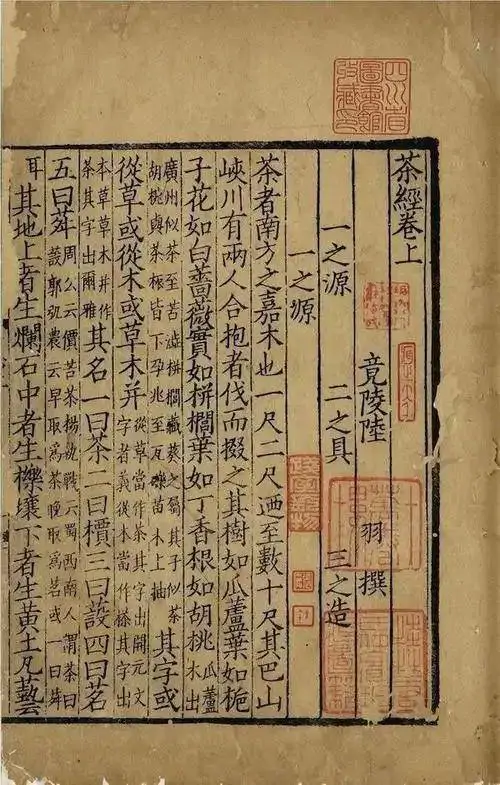 四川省圖書館收藏印
茶經卷上
竟陵陸 羽 撰
一之源 二之具 三之造
一之源
茶者南方之嘉木也一尺二尺迺至數十尺其巴山
峽川有兩人合抱者伐而掇之其樹如瓜蘆葉如梔
子花如白薔薇實如栟櫚葉如丁香根如胡桃瓜蘆木出
廣州似茶至苦澁栟櫚蒲葵之屬其子似茶胡桃與茶根皆下孕兆至瓦礫苗木上抽其字或
從草或從木或草木并從草當作茶其字出開元文字者義從木當作搽其字出
本草草木并作茶其字出爾雅其名一曰茶二曰檟三曰蔎四曰茗
五曰荈周公云檟苦茶揚執戟云蜀西南人謂茶曰蔎郭弘農云早取爲茶晚取爲茗或一曰荈
耳其地上者生爛石中者生櫟壤下者生黃土凡藝